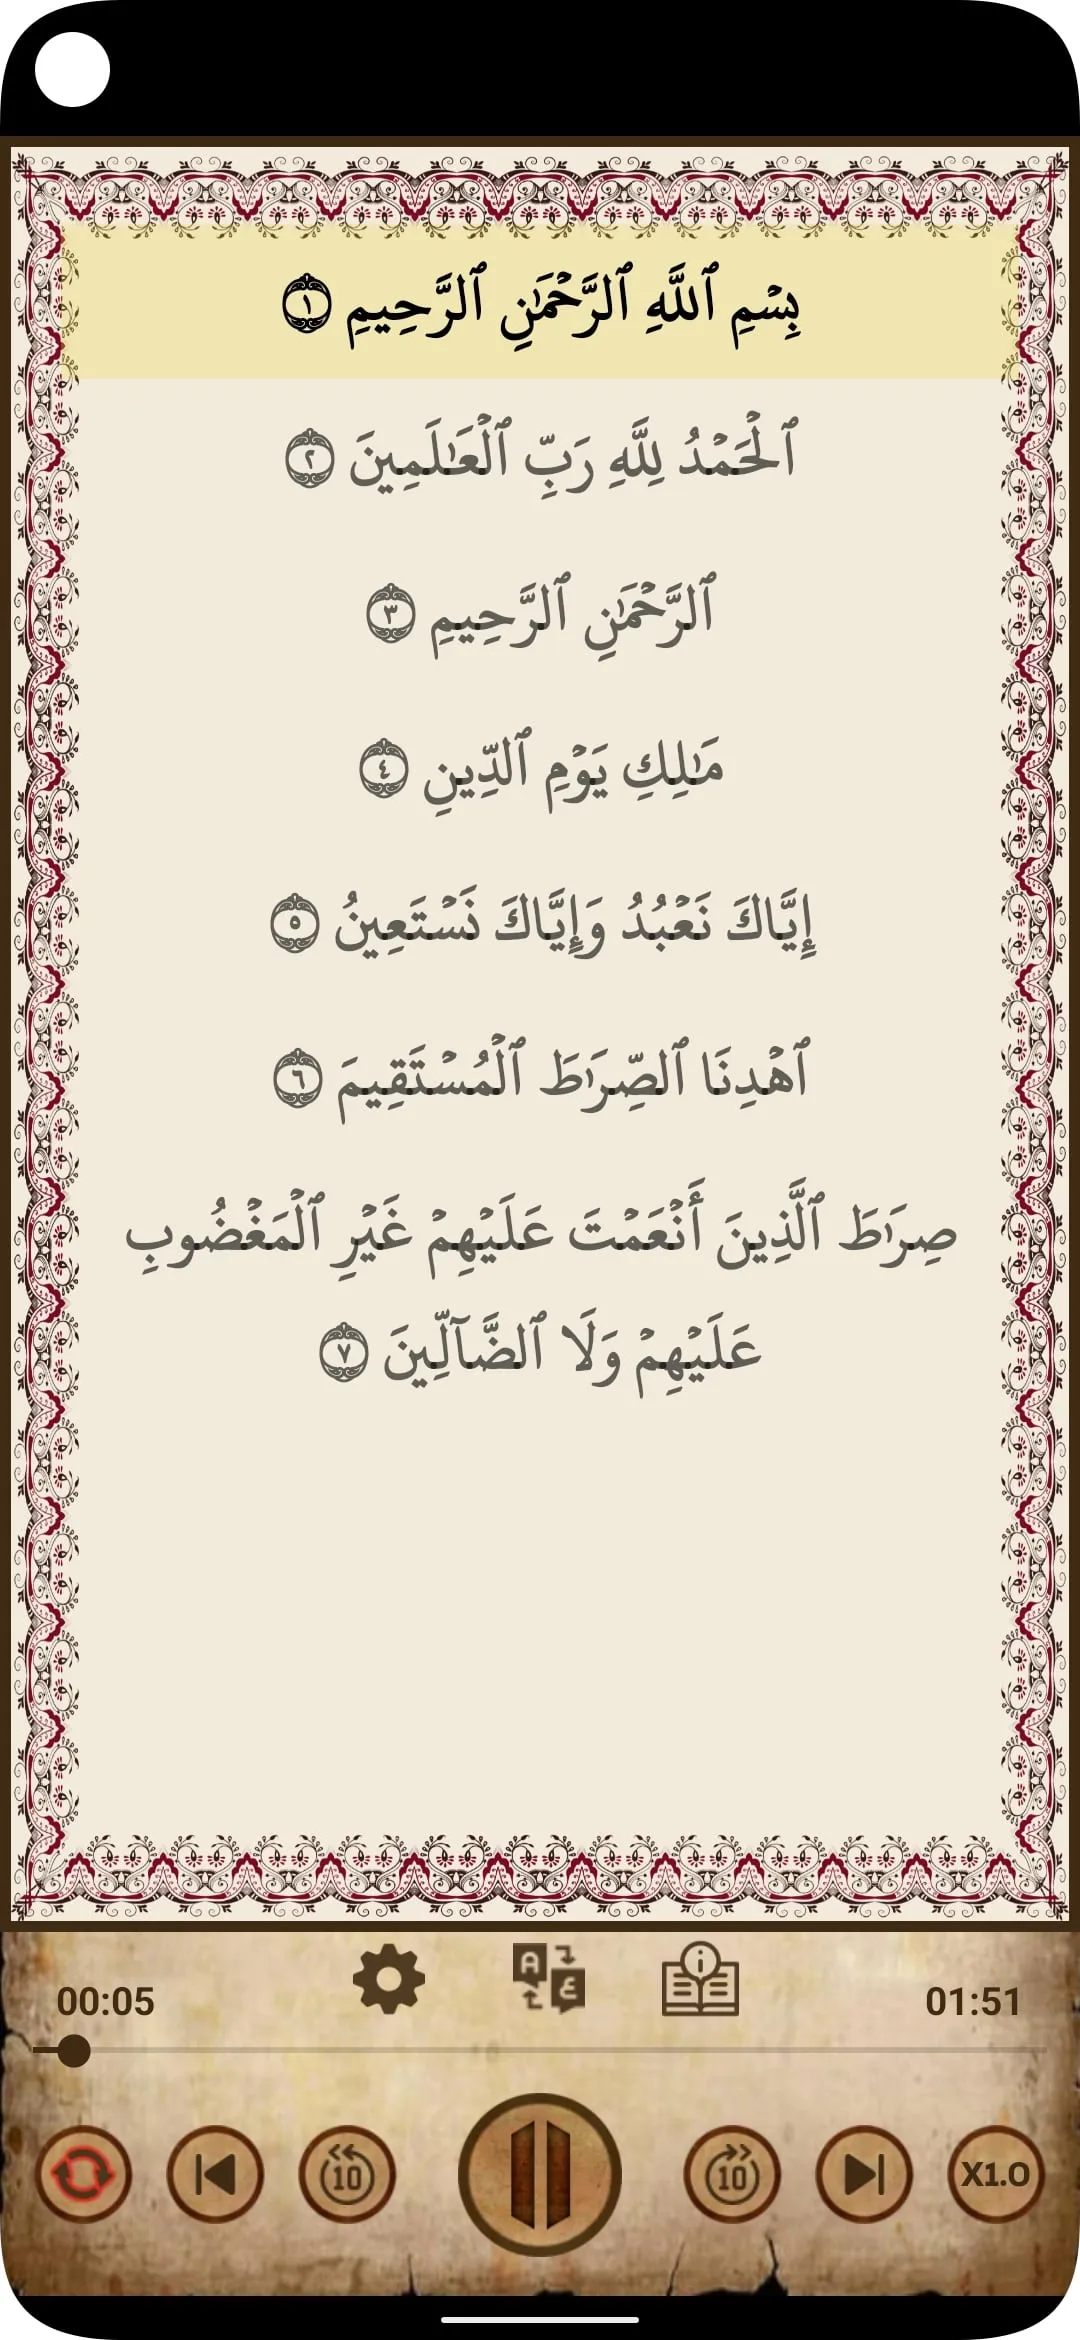 بِسْمِ ٱللَّهِ ٱلرَّحْمَٰنِ ٱلرَّحِيمِ ١
ٱلْحَمْدُ لِلَّهِ رَبِّ ٱلْعَٰلَمِينَ ٢
ٱلرَّحْمَٰنِ ٱلرَّحِيمِ ٣
مَٰلِكِ يَوْمِ ٱلدِّينِ ٤
إِيَّاكَ نَعْبُدُ وَإِيَّاكَ نَسْتَعِينُ ٥
ٱهْدِنَا ٱلصِّرَٰطَ ٱلْمُسْتَقِيمَ ٦
صِرَٰطَ ٱلَّذِينَ أَنْعَمْتَ عَلَيْهِمْ غَيْرِ ٱلْمَغْضُوبِ
عَلَيْهِمْ وَلَا ٱلضَّآلِّينَ ٧
A ع
00:05 01:51
10 10 X1.0